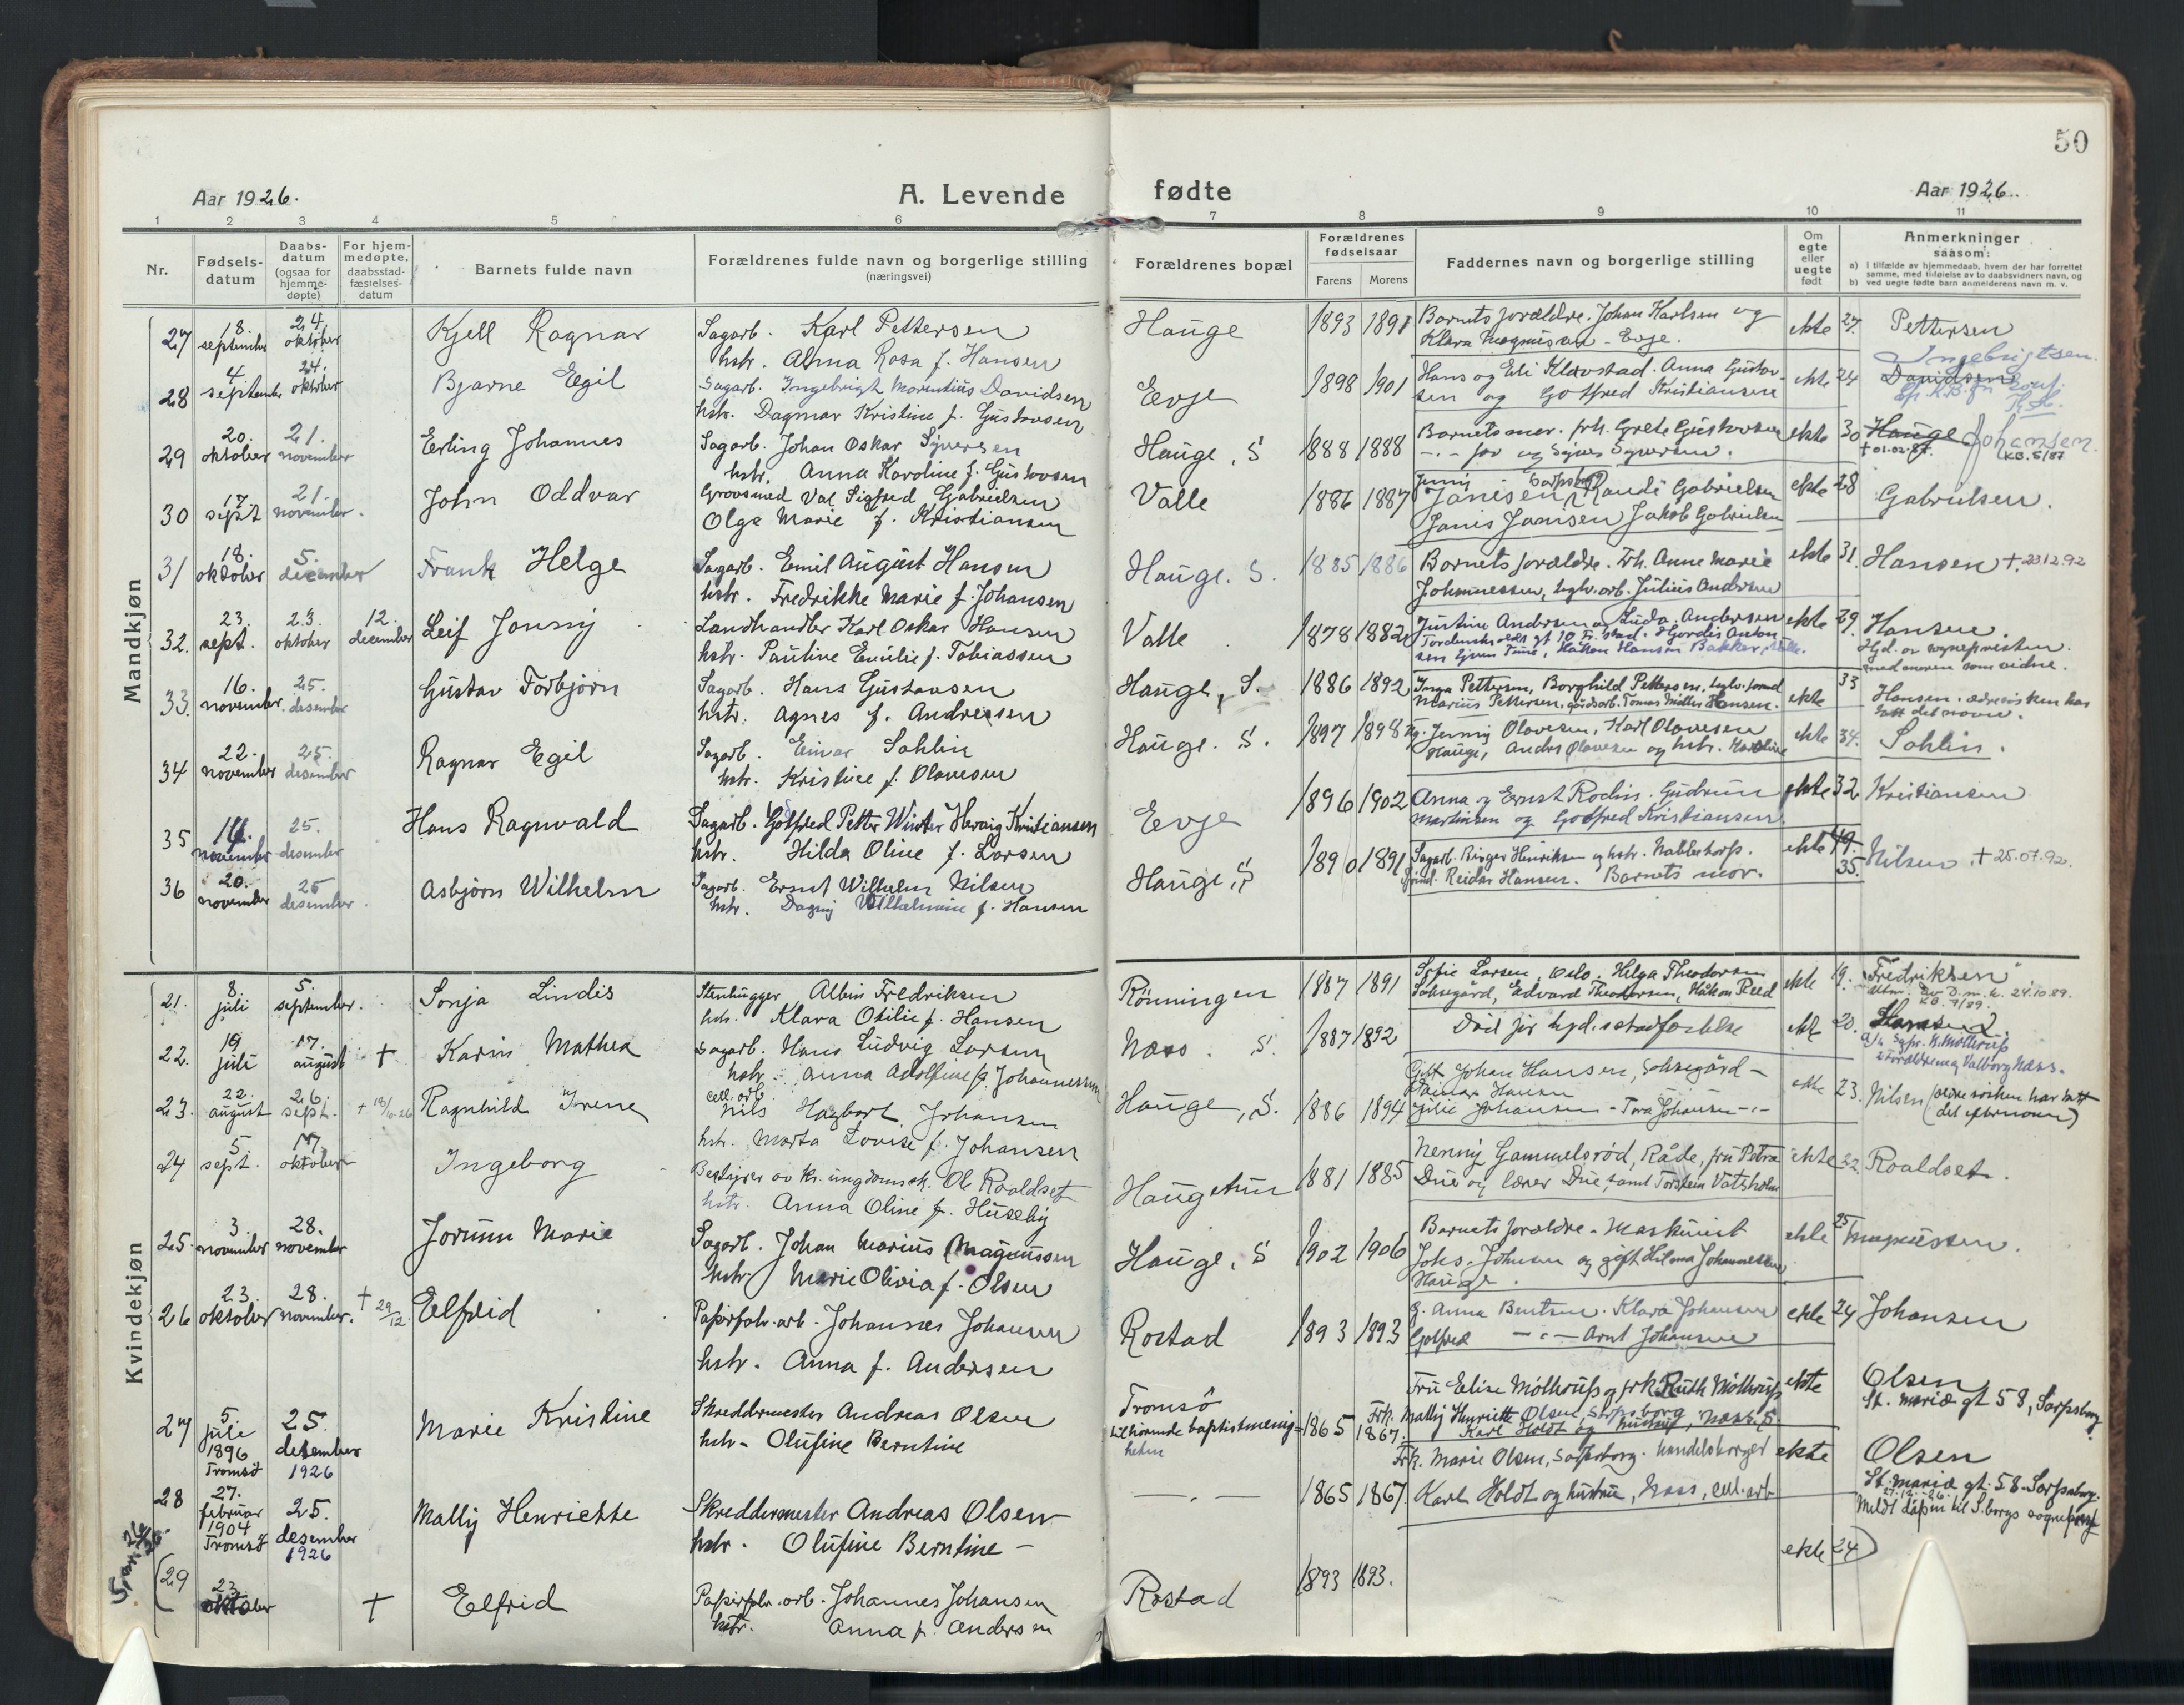 50
Aar 1926.
A. Levende fødte
Aar 1926.
1 2 3 4 5 6 7 8 9 10 11
Nr.
Fødsels-
datum
Daabs-
datum
(ogsaa for
hjemme-
døpte)
For hjem-
medøpte,
daabsstad-
fæstelses-
datum
Barnets fulde navn
Forældrenes fulde navn og borgerlige stilling
(næringsvei)
Forældrenes bopæl
Forældrenes
fødselsaar
Farens Morens
Faddernes navn og borgerlige stilling
Om
egte
eller
uegte
født
Anmerkninger
saasom:
a) i tilfælde av hjemmedaab, hvem der har forrettet
samme, med tilføielse av to daabsvidners navn, og
b) ved uegte fødte barn anmelderens navn m. v.
Mandkjøn
27 18. september 24. oktober Kjell Ragnar
Sagarb. Karl Pettersen
hstr. Anna Rosa f. Hansen
Hauge 1893 1891
Barnets forældre. Johan Karlsen og
Klara Magnussen - Evje.
ekte 27. Pettersen
28 4 september 24. oktober Bjarne Egil
Sagarb. Ingebrigt Morentius Davidsen
hstr. Dagmar Kristine f. Gustavsen
Evje 1898 1901
Hans og Eli Klavestad. Anna Gustav-
sen og Gotfred Kristiansen
ekte 24 Davidsen
Ingebrigtsen.
29 20. oktober 21. november Erling Johannes
Sagarb. Johan Oskar Syversen
hstr. Anna Karoline f. Gustavsen
Hauge, S 1888 1888
Barnets mor. frk. Grete Gustavsen
-"- far og Signe Syversen.
ekte 30 Hauge Johansen
+ 01.02.87. KB. 5/87
30 17 sept 21. november. John Oddvar
Grovsmed Val Sigfred Gabrielsen
Olga Marie f. Kristiansen
Valle 1886 1887
Jenny Sarpsborg
Janisen, Randi Gabrielsen
Janis Janisen Jakob Gabrielsen
ekte 28 Gabrielsen.
31 18. oktober 5. december Frank Helge
Sagarb. Emil August Hansen
hstr. Fredrikke Marie f. Johansen
Hauge. S. 1885 1886
Barnets forældre. Frk. Anne Marie
Johannessen, teglv.arb. Julius Andersen
ekte 31. Hansen + 23.12.92
32. 23. sept. 23. oktober 12. december Leif Jonny
Landhandler Karl Oskar Hansen
hstr. Pauline Emilie f. Tobiassen
Valle 1878 1882
Justine Andersen og Lida Andersen
Tordenskjolds gt 10 Fr.stad. Hjordis Anton-
sen Gjern Tune, Håkon Hansen Bakker, Valle.
ekte 29. Hansen.
Hjd. av sognepresten
med moren som vidne.
33. 16. november. 25. desember Gustav Torbjørn
Sagarb. Hans Gustavsen
hstr. Agnes f. Andresen
Hauge, S. 1886 1892
Inga Pettersen, Borghild Pettersen, teglv.formd
Marius Pettersen, gårdsarb. Tomas Møller Hansen.
ekte 33 Hansen. ældre søsken har
tatt det navn.
34 22. november 25. desember Ragnar Egil
Sagarb. Einar Sahlin
hstr. Kristine f. Olavesen
Hauge. S. 1897 1898
Frk. Jenny Olavesen, Karl Olavesen
Hauge, Andr. Olavesen og hstr. Karoline
ekte 34. Sahlin.
35 14. november 25. desember Hans Ragnvald
Sagarb. Gotfred Petter Winter Hervig Kristiansen
hstr. Hilda Oline f. Larsen
Evje 1896 1902
Anna og Ernst Rodin. Gudrun
Martinsen og Gotfred Kristiansen
ekte 32 Kristiansen
36 20. november 25 desember. Asbjørn Wilhelm
Sagarb. Ernst Wilhelm Nilsen
hstr. Dagny Vilhelmine f. Hansen
Hauge, S 1890 1891
Sagarb. Birger Henriksen og hstr. Nabbetorp.
Reidar Hansen. Barnets mor.
ekte 35. Nilsen + 25.07.92.
Kvindekjøn
21. 8. juli 5. september. Sonja Lindis
Stenhugger Albin Fredriksen
hstr. Klara Otilie f. Hansen
Rönningen 1887 1891
Sofie Larsen, Oslo. Helga Theodorsen
Solsegård, Edvard Theodorsen, Håkon Reed
ekte 19. Fredriksen
24.10.89.
KB. 7/89.
22. 19 juli 17. august + Karin Mathea
Sagarb. Hans Ludvig Larsen
hstr. Anna Adolfine f. Johannessen
Næss. S. 1887 1892
Död för hjd. stadfestelse
ekte 20. Hansen
a/ Sgpr. N. Møltrup
Forældrene og Valborg Næss.
23. 22. august 26. sept. + 18/6-26 Ragnhild Irene
cell. arb.
Nils Hagbart Johansen
hstr. Marta Lovise f. Johansen
Hauge, S. 1886 1894
Gift Johan Hansen, Solsegård -
Hansen
Julie Johansen - Tora Johansen -"-
ekte 23. Nilsen (ældre søsken har tatt
det efternavn)
24 5 sept. 17 oktober Ingeborg
Bestyrer av kr. ungdomssk. Ole Roaldset
hstr. Anna Oline f. Huseby
Haugetun 1881 1885
Nenny Gammelsrød, Råde, fru Petra
Due og lærer Due, samt Torstein Vatsholm
ekte 22 Roaldset.
25. 3. november 28. november Jorunn Marie
Sagarb. Johan Marius Magnussen
hstr. Marie Olivia f. Olsen
Hauge, S 1902 1906
Barnets forældre - Maskinist
Johs. Johnsen og gift Hilma Johannessen
Hauge.
ekte 25 Magnussen.
26 23. oktober 28. november. + 29/12. Elfrid
Papirfabr.arb. Johannes Johansen
hstr. Anna f. Andersen
Rostad 1893 1893
g. Anna Bentsen. Klara Johansen
Gotfred -"- Arnt Johansen
ekte 24 Johansen
27 5. juli 1896 Tromsø 25. desember 1926 Marie Kristine
Skreddermester Andreas Olsen
hstr - Olufine Berntine
Tromsö
tilhörende baptistmenig-
heten
1865 1867.
Fru Elise Møltrup og frk Ruth Møltrup
Frk. Mally Henriette Olsen, Sarpsborg
Karl Holdt og hustru, Næss. S.
ekte Olsen
St. Marie gt 58, Sarpsborg
28 27. februar 1904 Tromsö 25. desember 1926 Mally Henriette
Skreddermester Andreas Olsen
hstr. Olufine Berntine -
-"- 1865 1867
Frk. Marie Olsen, Sarpsborg. handelsborger
Karl Holdt og hustru, Næss, cell.arb
ekte Olsen
St. Marie gt. 58. Sarpsborg.
27.12.26.
Meldt dåpen til S.borgs sogneprest
(29 23. oktober + Elfrid
Papirfabr.arb. Johannes Johansen
hstr. Anna f. Andersen
Rostad 1893 1893.
ekte 24)